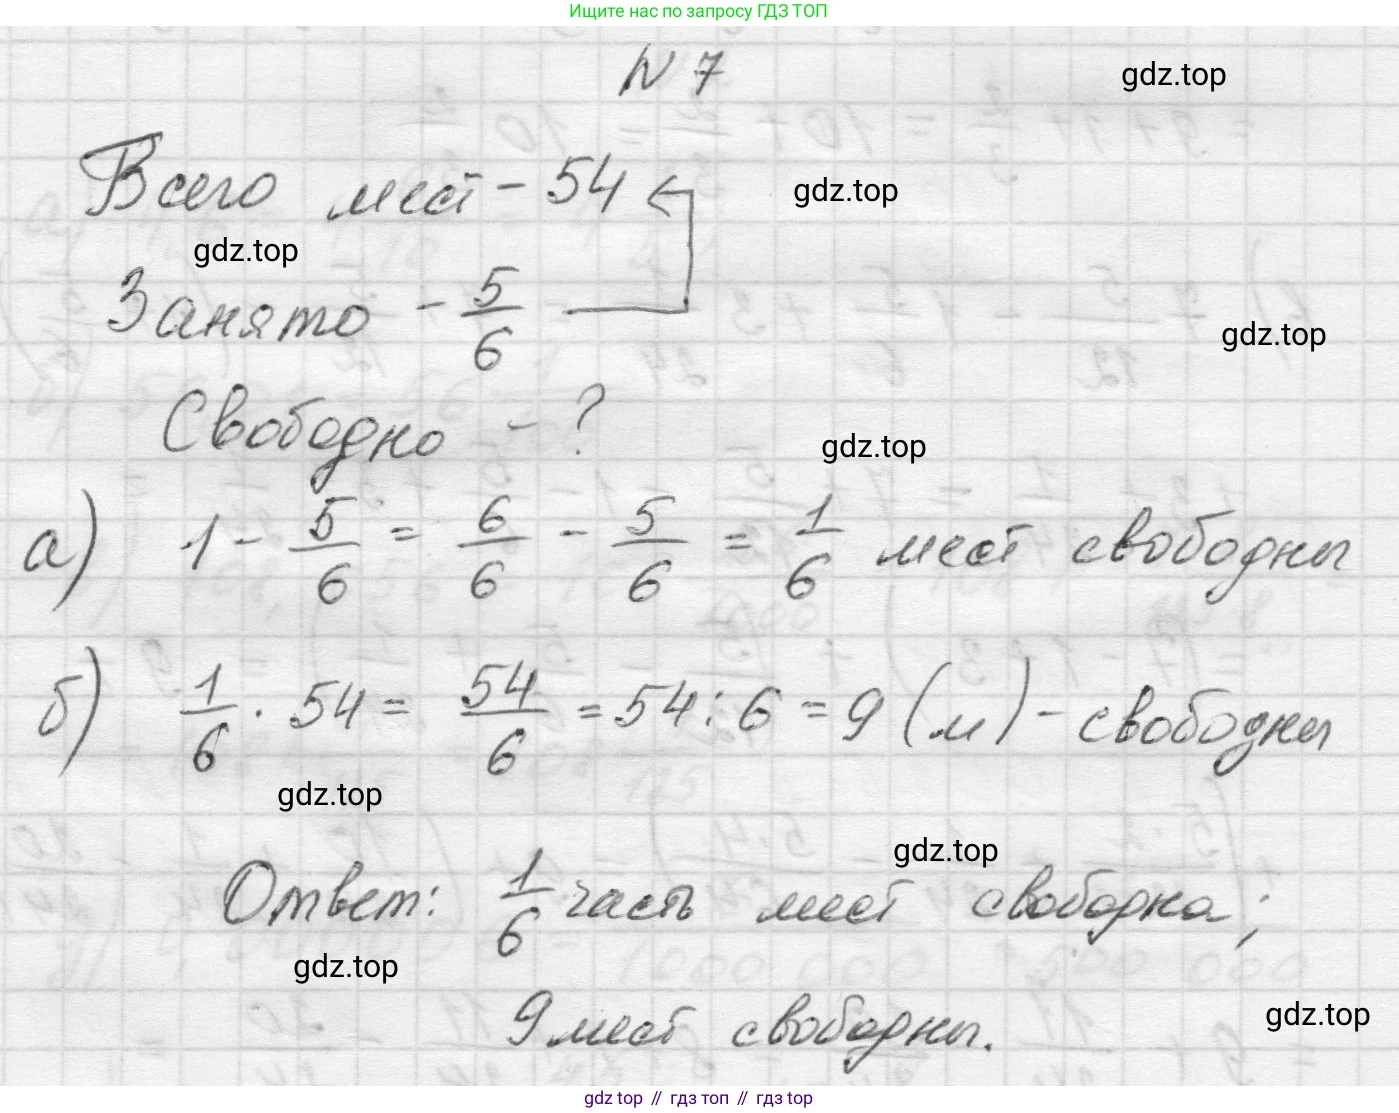 Ищите нас по запросу ГДЗ ТОП
N 7
gdz.top
Всего мест - 54
gdz.top
gdz.top
Занято - 5/6
gdz.top
Свободно - ?
gdz.top
а) 1 - 5/6 = 6/6 - 5/6 = 1/6 мест свободны
б) 1/6 · 54 = 54/6 = 54 : 6 = 9 (м) - свободны
gdz.top
gdz.top
Ответ: 1/6 часть мест свободна;
gdz.top
9 мест свободны.
gdz.top
gdz top // гдз топ // гдз top